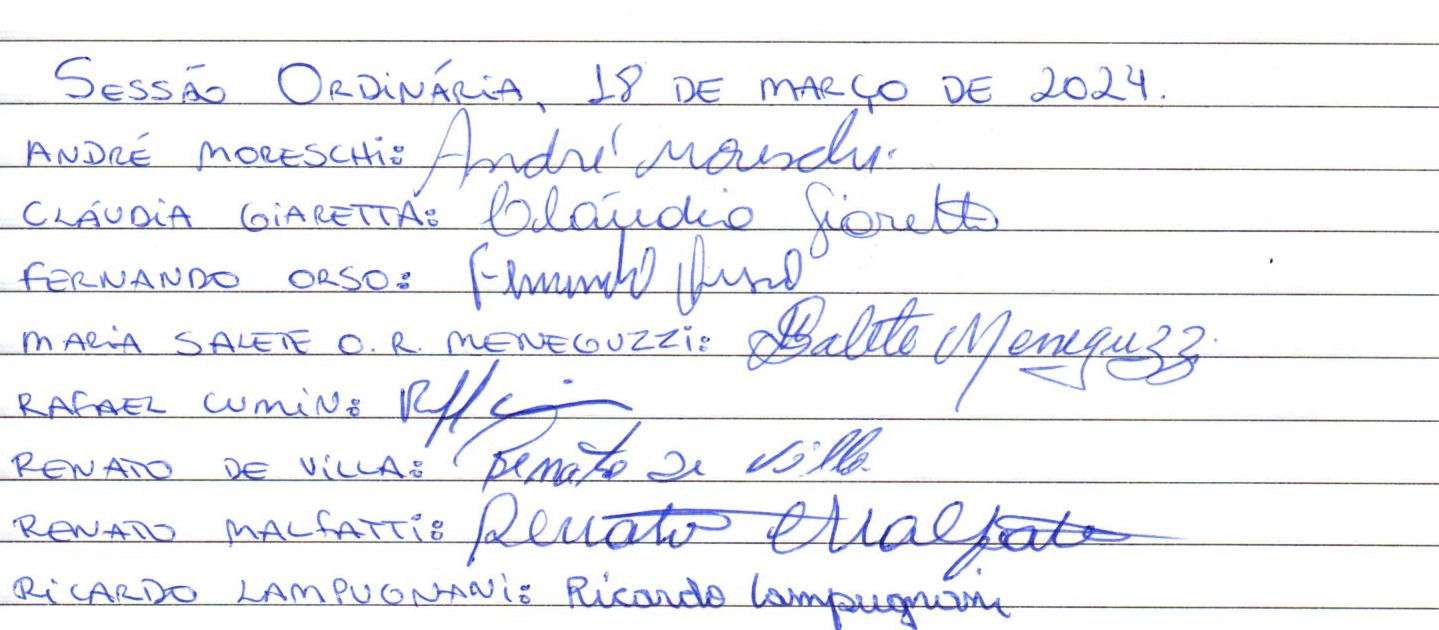 SESSÃO ORDINÁRIA, 18 DE MARÇO DE 2024.
ANDRÉ MORESCHI: André Moreschi
CLÁUDIA GIARETTA: Cláudia Giaretta
FERNANDO ORSO: Fernando Orso
MARIA SALETE O. R. MENEGUZZI: Salete Meneguzzi
RAFAEL CUMIN:
RENATO DE VILLA: Renato De Villa
RENATO MALFATTI: Renato Malfatti
RICARDO LAMPUGNANI: Ricardo Lampugnani